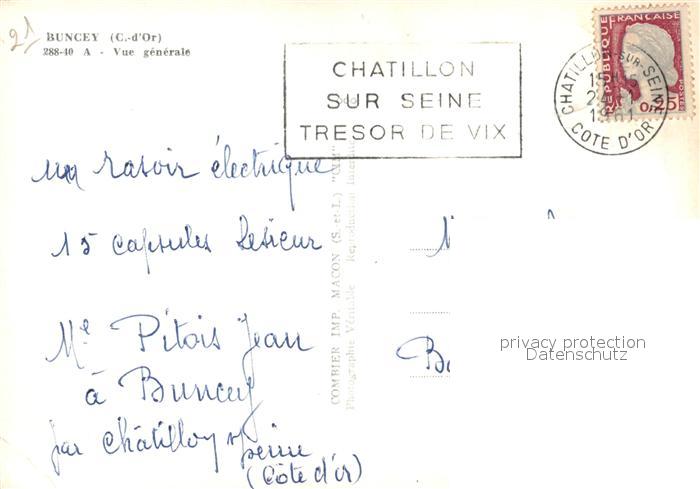 21
BUNCEY (C.-d'Or)
288-40 A - Vue générale
CHATILLON
SUR SEINE
TRESOR DE VIX
REPUBLIQUE FRANÇAISE
0,25
POSTES
CHATILLON-SUR-SEINE
24
1961
COTE D'OR
un rasoir électrique
15 capsules Lesieur
Mr Pitois Jean
à Buncey
par Châtillon s/ Seine
(Côte d'or)
COMBIER IMP. MACON (S.-et-L.) "CIM"
Photographie Véritable Reproduction
privacy protection
Datenschutz